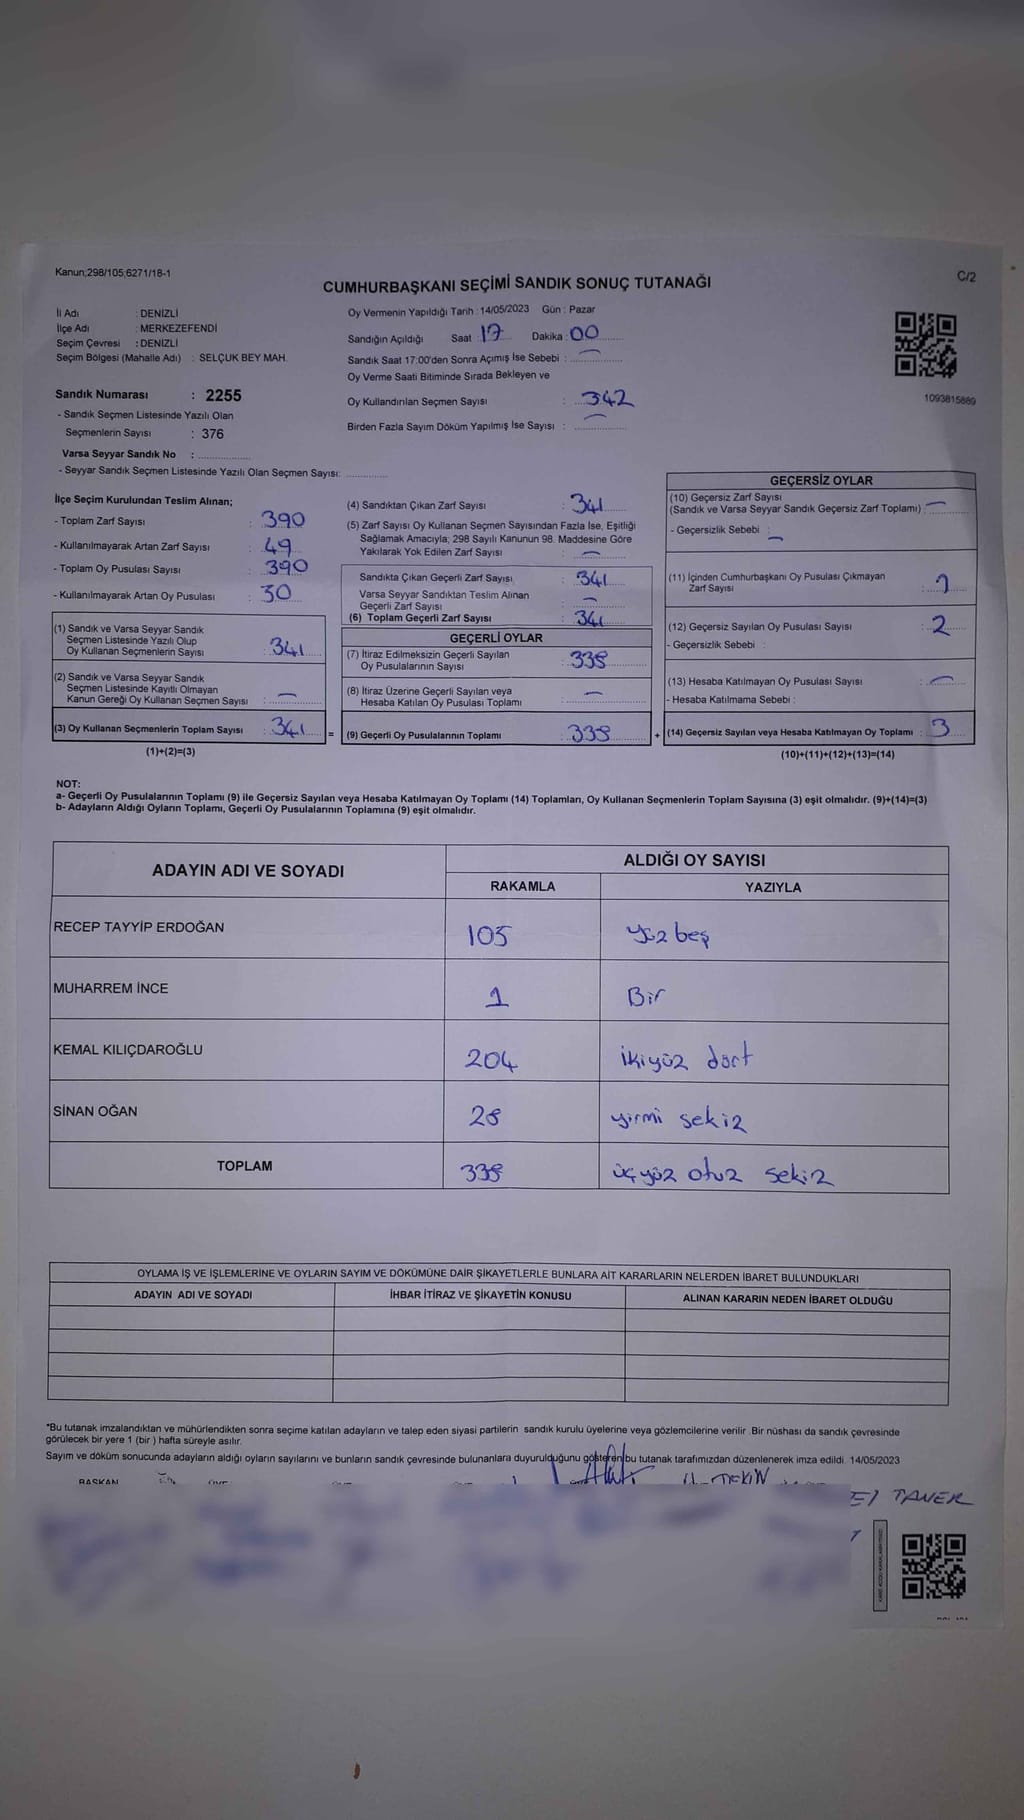 Kanun;298/105;6271/18-1
C/2
CUMHURBAŞKANI SEÇİMİ SANDIK SONUÇ TUTANAĞI
İl Adı : DENİZLİ
İlçe Adı : MERKEZEFENDİ
Seçim Çevresi : DENİZLİ
Seçim Bölgesi (Mahalle Adı) : SELÇUK BEY MAH.
Sandık Numarası : 2255
- Sandık Seçmen Listesinde Yazılı Olan
Seçmenlerin Sayısı : 376
Varsa Seyyar Sandık No : ..............
- Seyyar Sandık Seçmen Listesinde Yazılı Olan Seçmen Sayısı: ............
Oy Vermenin Yapıldığı Tarih : 14/05/2023 Gün : Pazar
Sandığın Açıldığı Saat : 17 Dakika : 00
Sandık Saat 17:00'den Sonra Açımış İse Sebebi : —
Oy Verme Saati Bitiminde Sırada Bekleyen ve
Oy Kullandırılan Seçmen Sayısı : 342
Birden Fazla Sayım Döküm Yapılmış İse Sayısı : —
1093815889
İlçe Seçim Kurulundan Teslim Alınan;
- Toplam Zarf Sayısı : 390
- Kullanılmayarak Artan Zarf Sayısı : 49
- Toplam Oy Pusulası Sayısı : 390
- Kullanılmayarak Artan Oy Pusulası : 30
(1) Sandık ve Varsa Seyyar Sandık
Seçmen Listesinde Yazılı Olup
Oy Kullanan Seçmenlerin Sayısı : 341
(2) Sandık ve Varsa Seyyar Sandık
Seçmen Listesinde Kayıtlı Olmayan
Kanun Gereği Oy Kullanan Seçmen Sayısı : —
(3) Oy Kullanan Seçmenlerin Toplam Sayısı : 341 =
(1)+(2)=(3)
(4) Sandıktan Çıkan Zarf Sayısı : 341
(5) Zarf Sayısı Oy Kullanan Seçmen Sayısından Fazla İse, Eşitliği
Sağlamak Amacıyla; 298 Sayılı Kanunun 98. Maddesine Göre
Yakılarak Yok Edilen Zarf Sayısı : —
Sandıkta Çıkan Geçerli Zarf Sayısı : 341
Varsa Seyyar Sandıktan Teslim Alınan
Geçerli Zarf Sayısı : —
(6) Toplam Geçerli Zarf Sayısı : 341
GEÇERLİ OYLAR
(7) İtiraz Edilmeksizin Geçerli Sayılan
Oy Pusulalarının Sayısı : 338
(8) İtiraz Üzerine Geçerli Sayılan veya
Hesaba Katılan Oy Pusulası Toplamı : —
(9) Geçerli Oy Pusulalarının Toplamı : 338 +
GEÇERSİZ OYLAR
(10) Geçersiz Zarf Sayısı
(Sandık ve Varsa Seyyar Sandık Geçersiz Zarf Toplamı) : —
- Geçersizlik Sebebi : —
(11) İçinden Cumhurbaşkanı Oy Pusulası Çıkmayan
Zarf Sayısı : 1
(12) Geçersiz Sayılan Oy Pusulası Sayısı : 2
- Geçersizlik Sebebi :
(13) Hesaba Katılmayan Oy Pusulası Sayısı : —
- Hesaba Katılmama Sebebi :
(14) Geçersiz Sayılan veya Hesaba Katılmayan Oy Toplamı : 3
(10)+(11)+(12)+(13)=(14)
NOT:
a- Geçerli Oy Pusulalarının Toplamı (9) ile Geçersiz Sayılan veya Hesaba Katılmayan Oy Toplamı (14) Toplamları, Oy Kullanan Seçmenlerin Toplam Sayısına (3) eşit olmalıdır. (9)+(14)=(3)
b- Adayların Aldığı Oyların Toplamı, Geçerli Oy Pusulalarının Toplamına (9) eşit olmalıdır.
ADAYIN ADI VE SOYADI ALDIĞI OY SAYISI
RAKAMLA YAZIYLA
RECEP TAYYİP ERDOĞAN 105 yüz beş
MUHARREM İNCE 1 Bir
KEMAL KILIÇDAROĞLU 204 ikiyüz dört
SİNAN OĞAN 28 yirmi sekiz
TOPLAM 338 üçyüz otuz sekiz
OYLAMA İŞ VE İŞLEMLERİNE VE OYLARIN SAYIM VE DÖKÜMÜNE DAİR ŞİKAYETLERLE BUNLARA AİT KARARLARIN NELERDEN İBARET BULUNDUKLARI
ADAYIN ADI VE SOYADI İHBAR İTİRAZ VE ŞİKAYETİN KONUSU ALINAN KARARIN NEDEN İBARET OLDUĞU
*Bu tutanak imzalandıktan ve mühürlendikten sonra seçime katılan adayların ve talep eden siyasi partilerin sandık kurulu üyelerine veya gözlemcilerine verilir. Bir nüshası da sandık çevresinde
görülecek bir yere 1 (bir) hafta süreyle asılır.
Sayım ve döküm sonucunda adayların aldığı oyların sayılarını ve bunların sandık çevresinde bulunanlara duyurulduğunu gösteren bu tutanak tarafımızdan düzenlenerek imza edildi. 14/05/2023
BAŞKAN
TEKİN
TANER